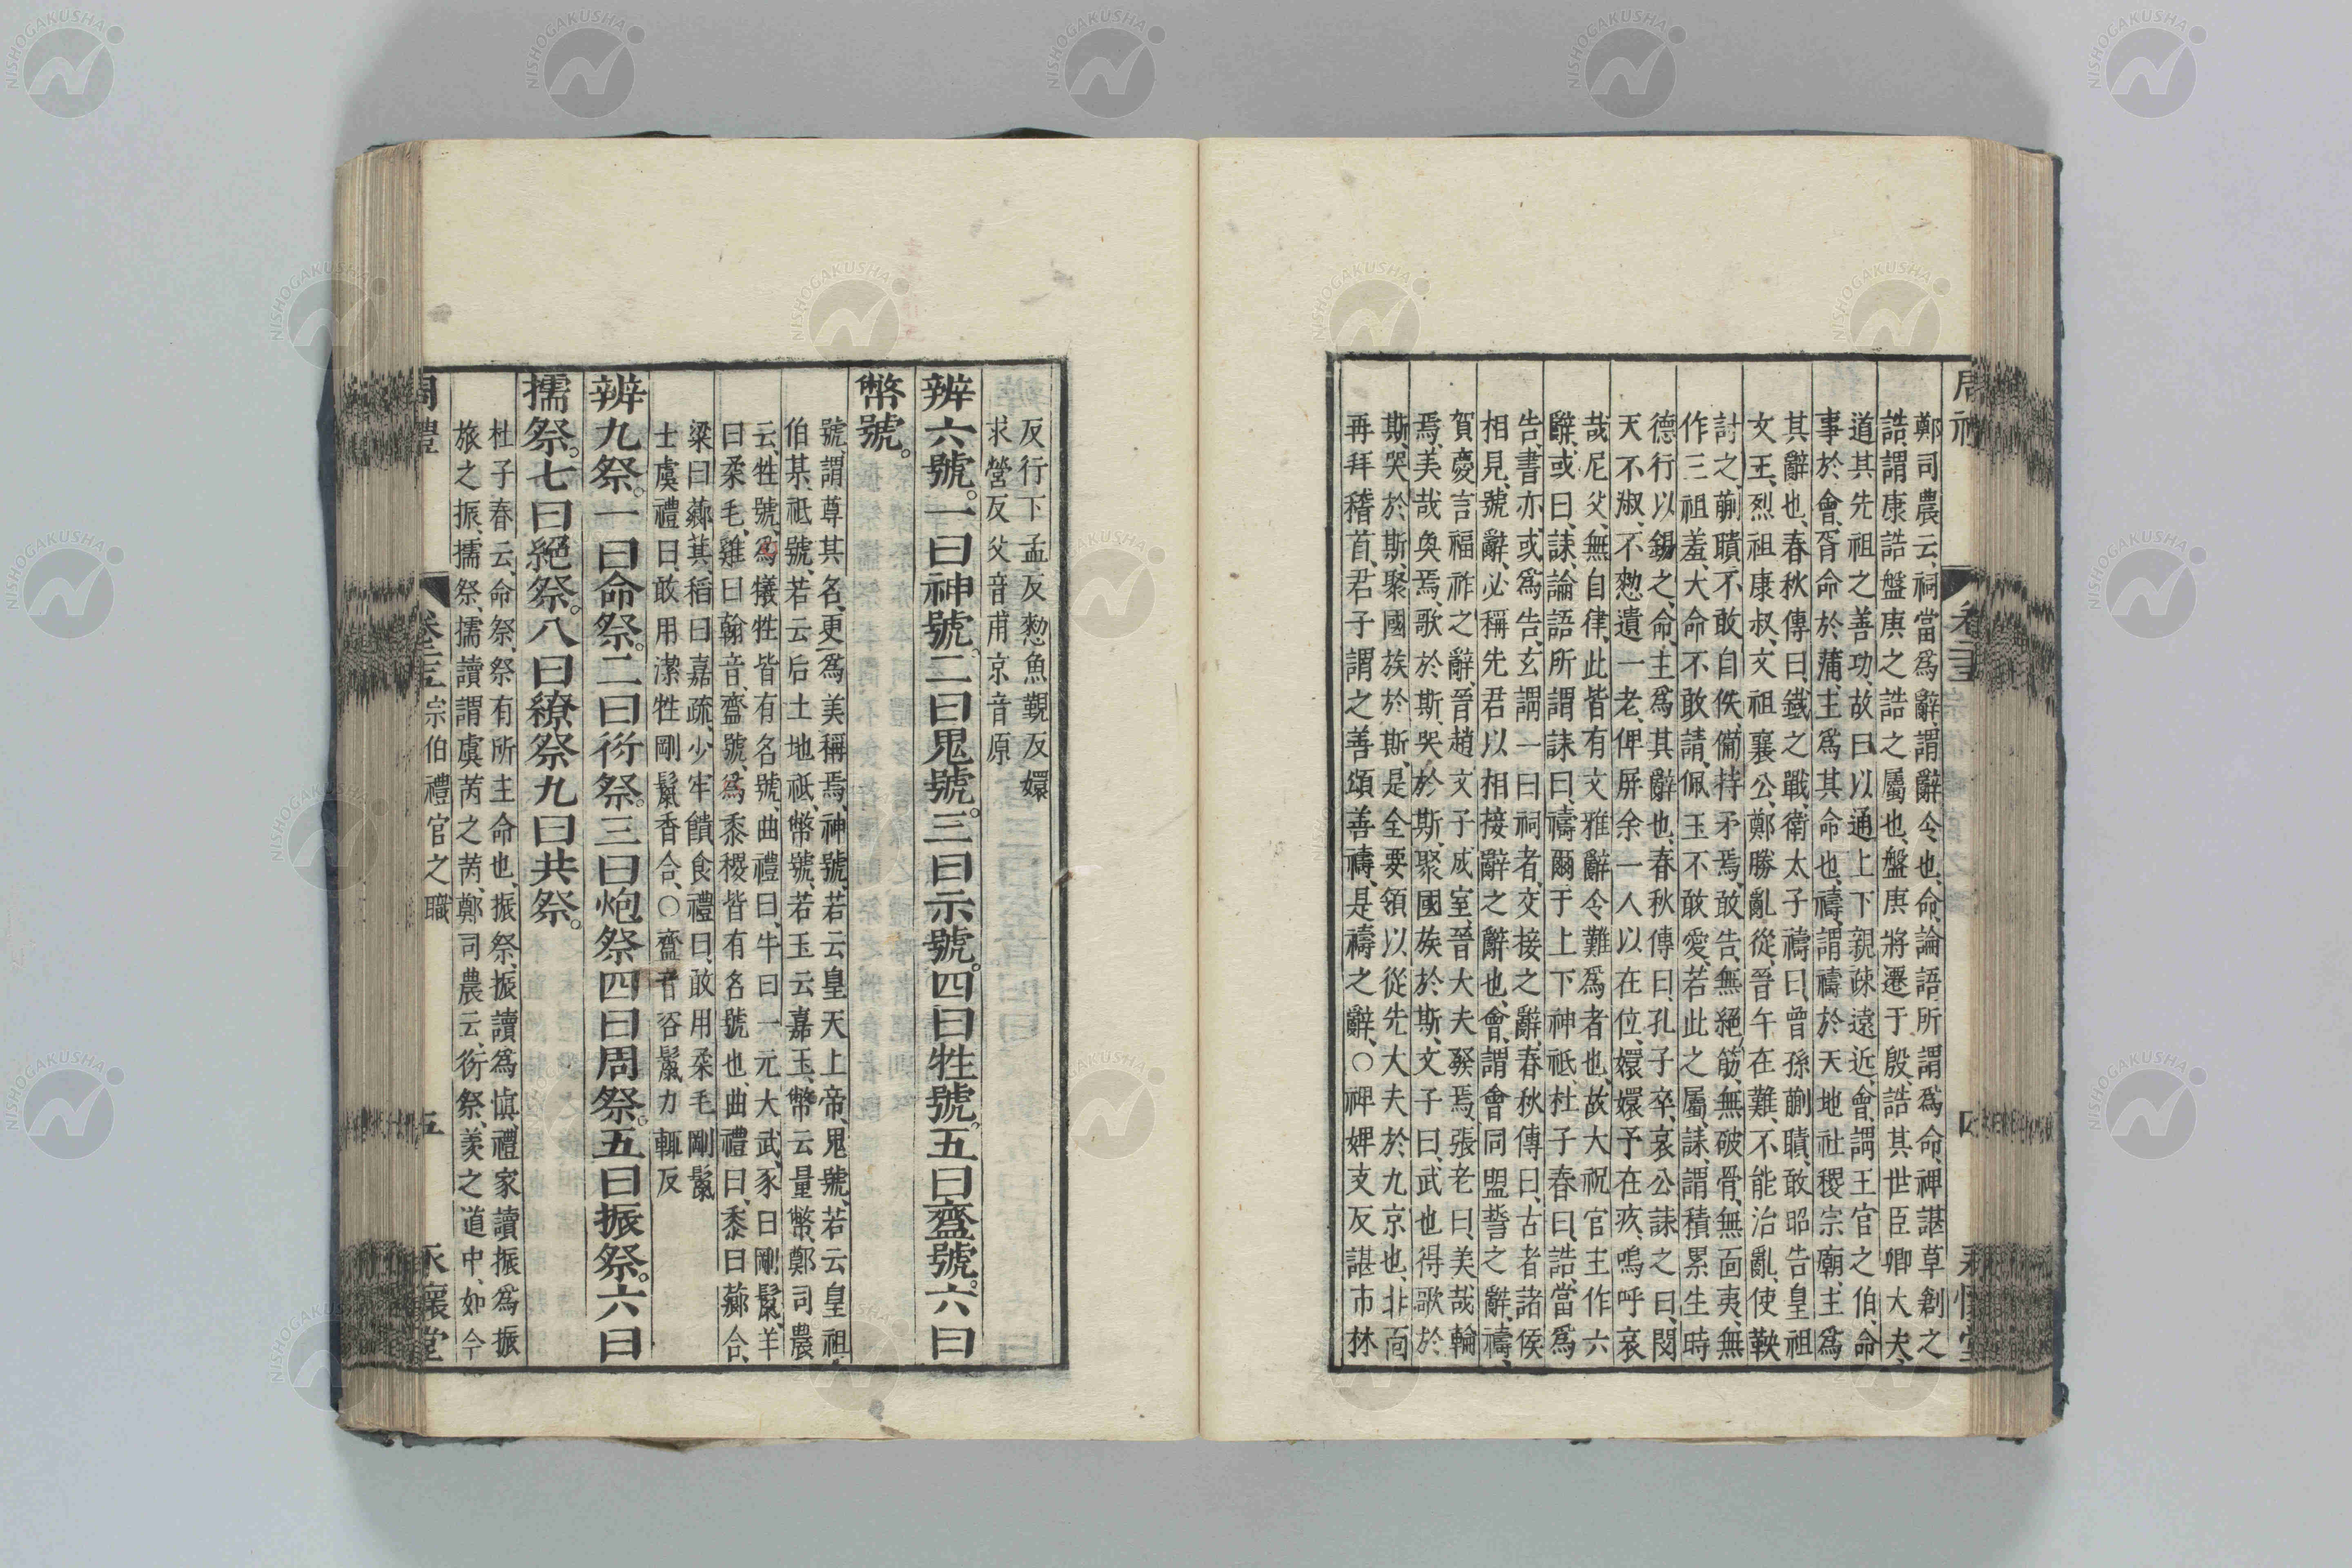 鄭司農云、祠當爲辭、謂辭令也、命、論語所謂爲命、裨諶草創之
誥、謂康誥盤庚之誥之屬也、盤庚將遷于殷、誥其世臣卿大夫、
道其先祖之善功、故曰以通上下親疎遠近、會、謂王官之伯、命
事於會、胥命於蒲、主爲其命也、禱、謂禱於天地社稷宗廟、主爲
其辭也、春秋傳曰、鐵之戰、衛太子禱曰、曾孫蒯聵、敢昭告皇祖
文王、烈祖康叔、文祖襄公、鄭勝亂從、晉午在難、不能治亂、使鞅
討之、蒯聵不敢自佚、備持矛焉、敢告無絕筋、無破骨、無面夷、無
作三祖羞、大命不敢請、佩玉不敢愛、若此之屬、誄、謂積累生時
德行以錫之命、主爲其辭也、春秋傳曰、孔子卒、哀公誄之曰、閔
天不淑、不憖遺一老、俾屏余一人以在位、嬛嬛予在疚、嗚呼哀
哉尼父、無自律、此皆有文雅辭令難爲者也、故大祝官主作六
辭、或曰、誄、論語所謂誄曰、禱爾于上下神祇、杜子春曰、誥、當爲
告、書亦或爲告、玄謂一曰祠者、交接之辭、春秋傳曰、古者諸侯
相見、號辭必稱先君以相接辭之辭也、會、謂會同盟誓之辭、禱、
賀慶言福祚之辭、晉趙文子成室、晉大夫發焉、張老曰、美哉輪
焉、美哉奐焉、歌於斯、哭於斯、聚國族於斯、文子曰、武也得歌於
斯、哭於斯、聚國族於斯、是全要領以從先大夫於九京也、北面
再拜稽首、君子謂之善頌善禱、是禱之辭、〇裨婢支反諶市林
反行下孟反憖魚覲反嬛
求營反父音甫京音原
辨六號。一曰神號。二曰鬼號。三曰示號。四曰牲號。五曰齍號。六曰
幣號。
號、謂尊其名、更爲美稱焉、神號、若云皇天上帝、鬼號、若云皇祖
伯某、祇號若云后土地祇、幣號、若玉云嘉玉、幣云量幣、鄭司農
云、牲號、爲犧牲皆有名號、曲禮曰、牛曰一元大武、豕曰剛鬣、羊
曰柔毛、雞曰翰音、齍號、爲黍稷皆有名號也、曲禮曰、黍曰薌合、
粱曰薌萁、稻曰嘉疏、少牢饋食禮曰、敢用柔毛剛鬣
士虞禮曰、敢用潔牲剛鬣香合、〇齍音咨鬣力輒反
辨九祭。一曰命祭。二曰衍祭。三曰炮祭。四曰周祭。五曰振祭。六曰
擩祭。七曰絕祭。八曰繚祭。九曰共祭。
杜子春云、命祭、祭有所主命也、振祭、振讀爲愼、禮家讀振爲振
旅之振、擩祭、擩讀謂虞芮之芮、鄭司農云、衍祭、羨之道中、如今
周禮 卷 宗伯禮官之職 五 永懷堂